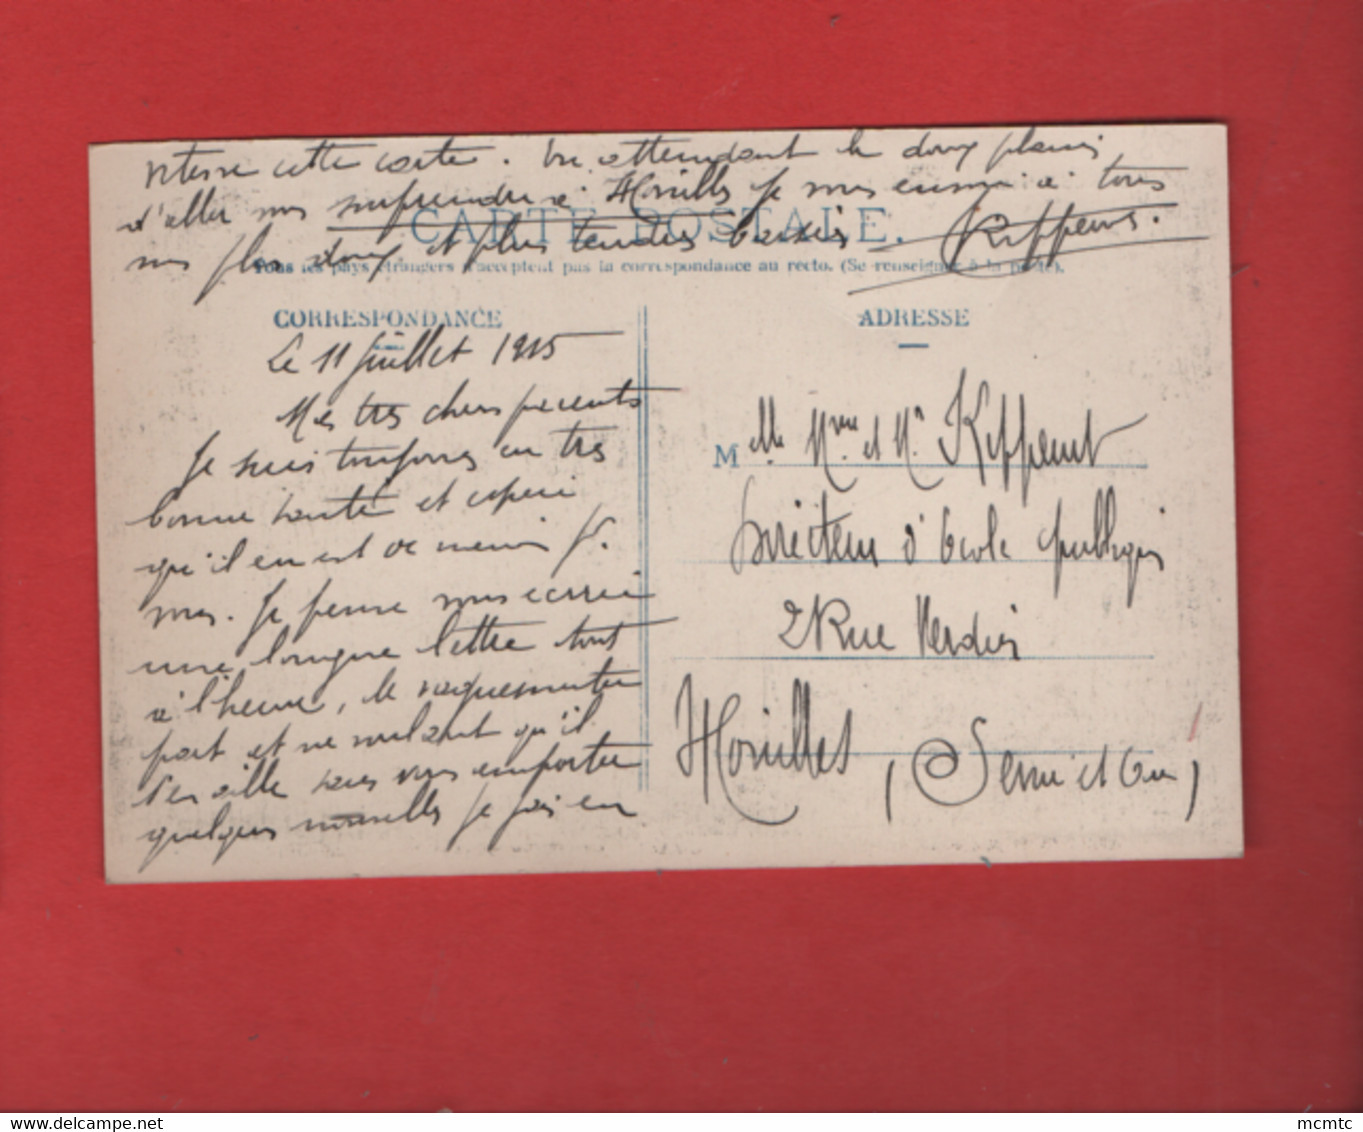 vitesse cette carte. En attendant le doux plaisir
d'aller vous surprendre à Houilles je vous envoie à tous
mes plus doux et plus tendres baisers Kippeurt.
CARTE POSTALE.
Tous les pays étrangers n'acceptent pas la correspondance au recto. (Se renseigner à la poste).
CORRESPONDANCE
Le 11 Juillet 1915
Mes très chers parents
Je suis toujours en très
bonne santé et espère
qu'il en est de même pr.
vous. Je pense vous écrire
une longue lettre tout
à l'heure, le vaguemestre
part et ne voulant qu'il
s'en aille sans vous emporter
quelques nouvelles je fais en
ADRESSE
Melle Mme et Mr Kippeurt
Directeur d'Ecole publique
2 Rue Verdier
Houilles (Seine et Oise)
mcmtc